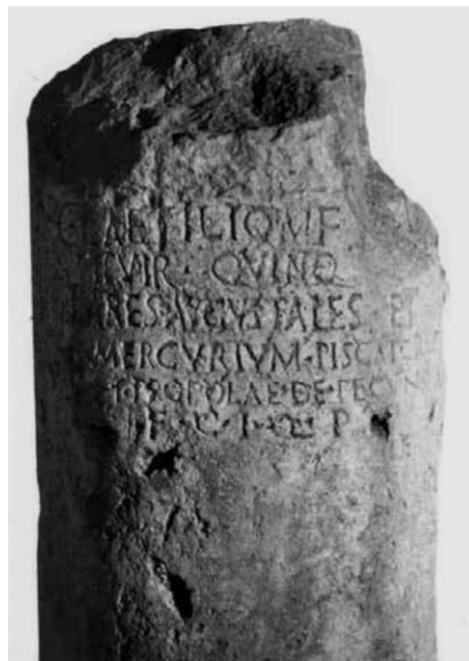 C LAETILIO M F
II VIR · QVINQ
LARES · AVGVSTALES ET
MERCVRIVM · PISCATO
PROPOLAE · DE · PECVN
F · C · I · Q · P